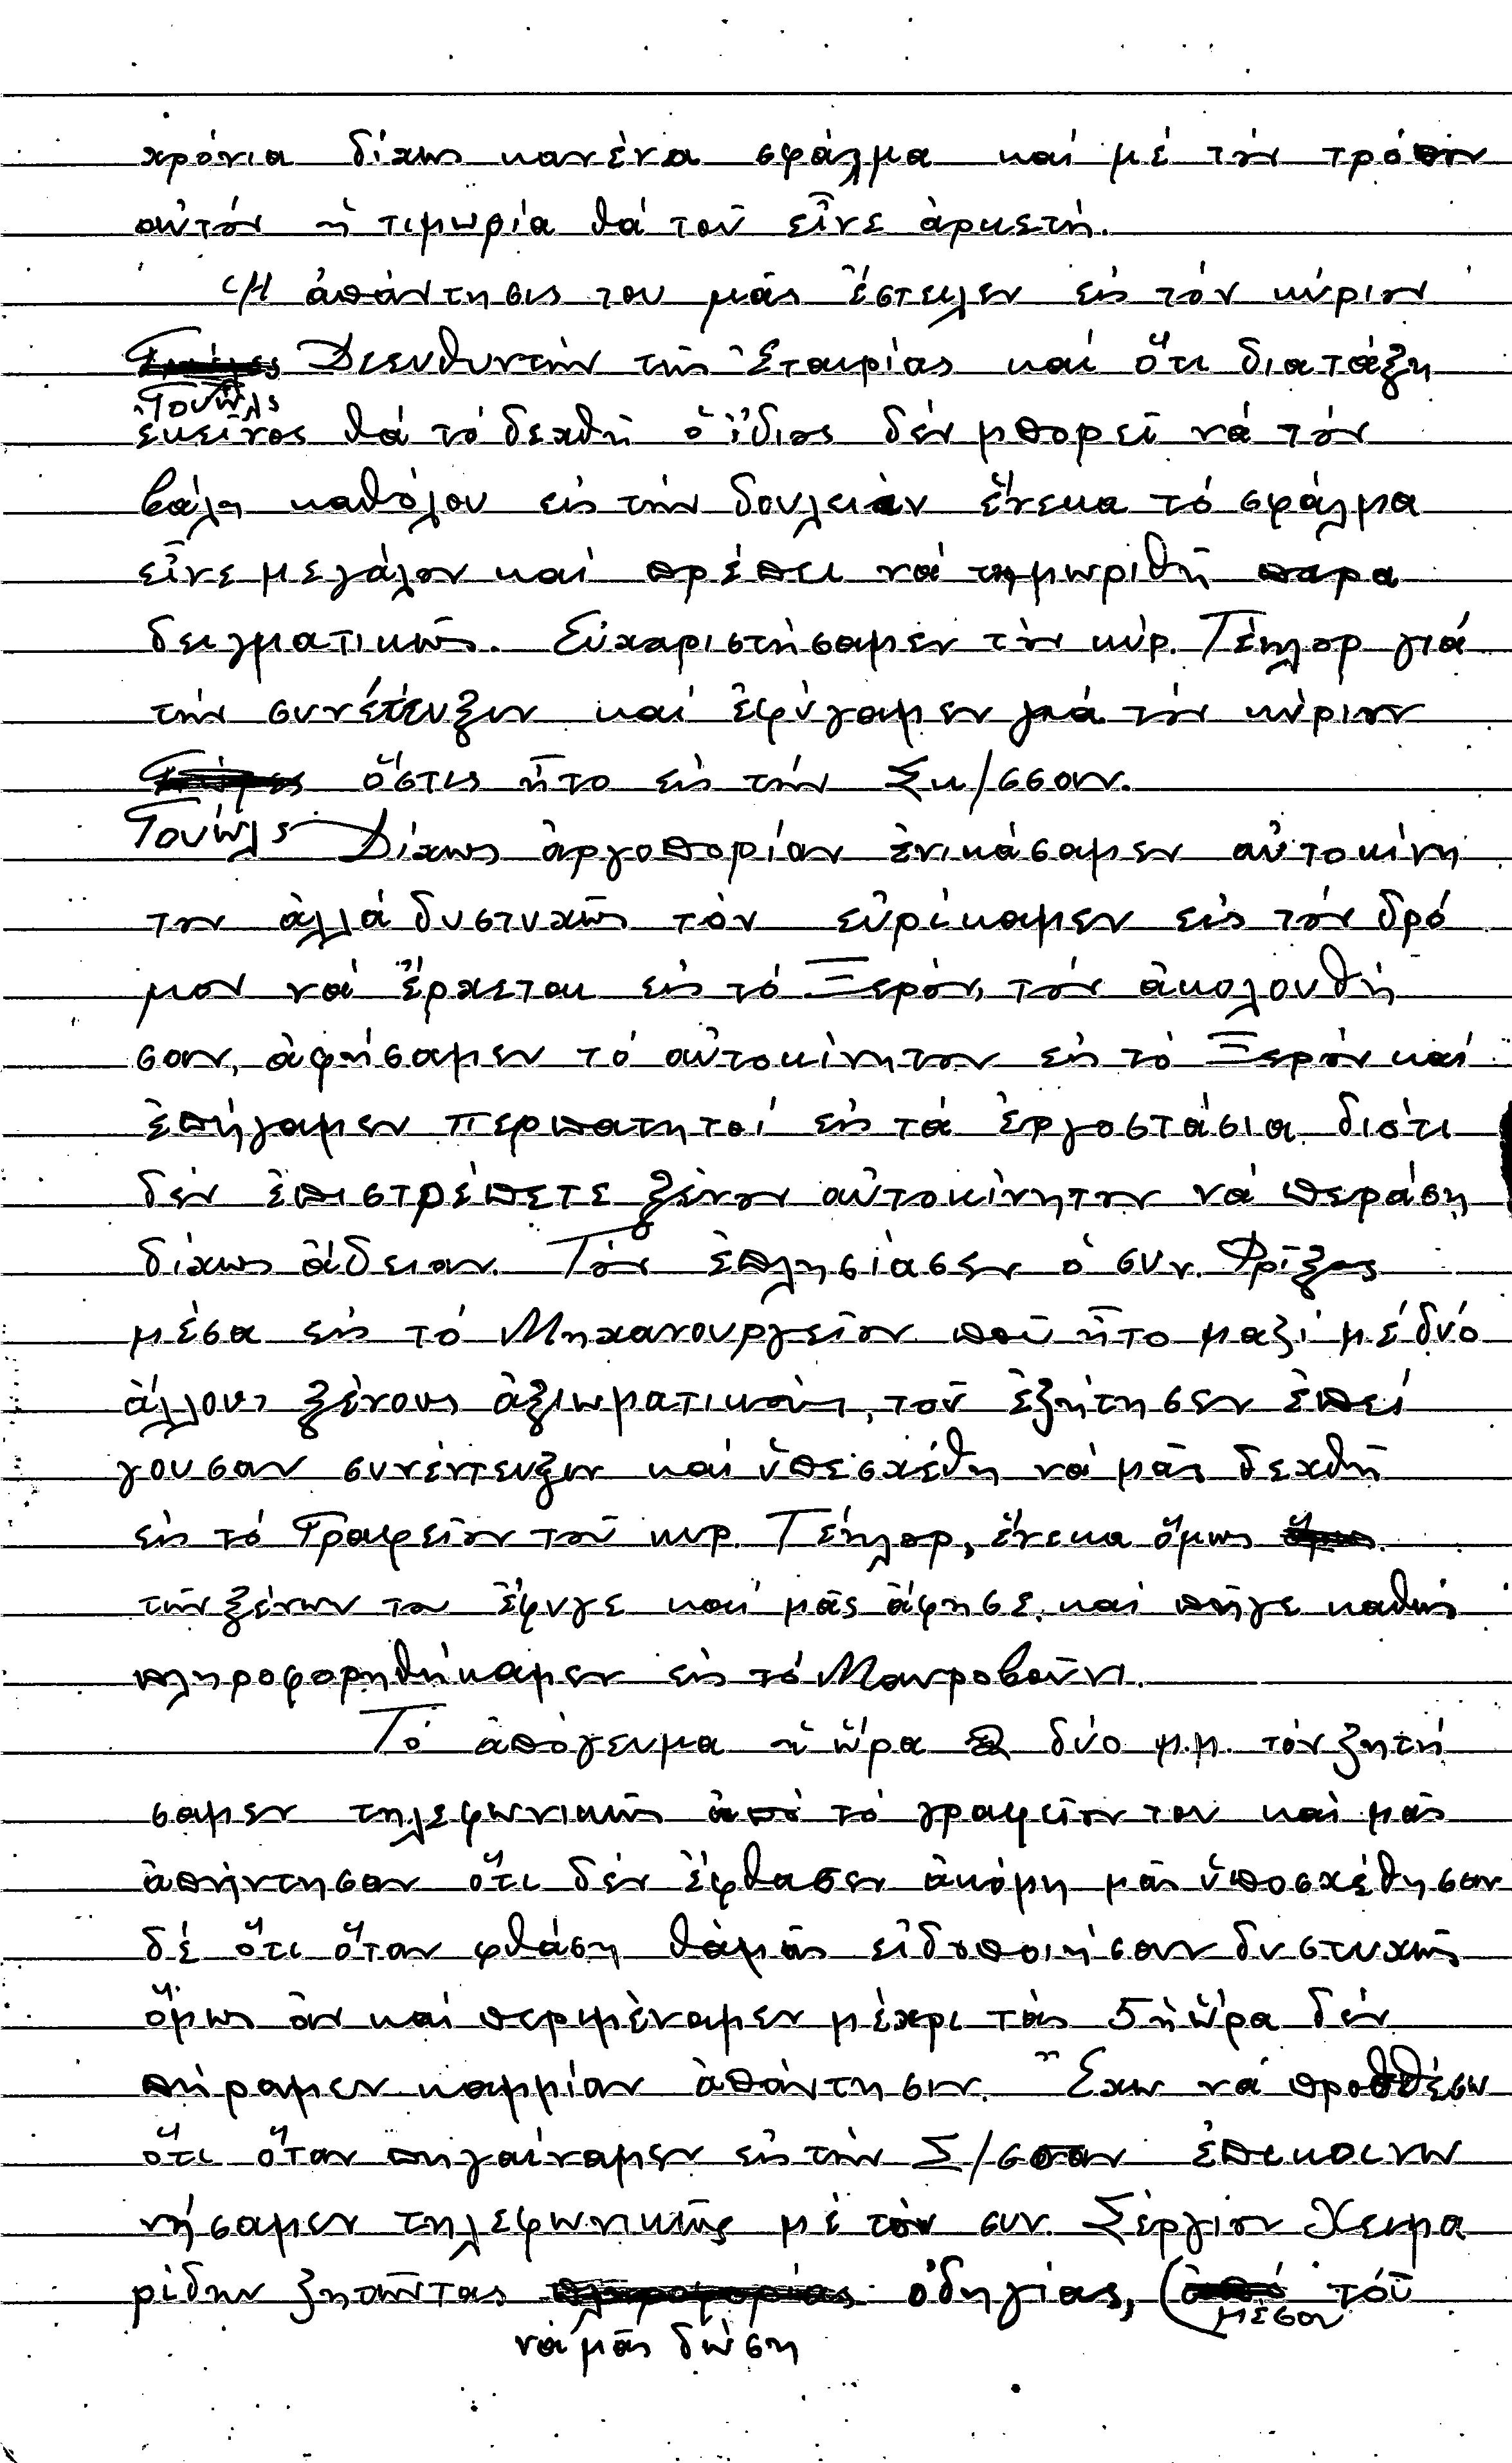 χρόνια δίχως κανένα σφάλμα καί μέ τόν τρόπον
αὐτόν ἡ τιμωρία θά τοῦ εἶνε ἀρκετή.
Ἡ ἀπάντησις του μᾶς ἔστειλεν εἰς τόν κύριον
Διευθυντήν τῆς Ἑταιρίας καί ὅτι διατάξη
Γουΐλς
ἐκεῖνος θά τό δεχθῆ ὁ ἴδιος δέν μπορεῖ νά τόν
βάλη καθόλου εἰς τήν δουλειάν ἕνεκα τό σφάλμα
εἶνε μεγάλον καί πρέπει νά τημωριθῆ παρα
δειγματικῶς. Εὐχαριστήσαμεν τόν κύρ. Τέηλορ γιά
τήν συνέντευξιν καί ἐφύγαμεν γιά τόν κύριον
ὅστις ἦτο εἰς τήν Σκ/σσαν.
Γουΐλς Δίχως ἀργοπορίαν ἐνικάσαμεν αὐτοκίνη
τον ἀλλά δυστυχῶς τόν εὑρίκαμεν εἰς τόν δρό
μον νά ἔρχεται εἰς τό Ξερόν, τόν ἀκολουθή
σαν, ἀφήσαμεν τό αὐτοκίνητον εἰς τό Ξερόν καί
ἐπήγαμεν περπατητοί εἰς τά ἐργοστάσια διότι
δέν ἐπιστρέπετε ξένον αὐτοκίνητον νά περάση
δίχως ἄδειαν. Τόν ἐπλησίασεν ὁ συν. Φρίξος
μέσα εἰς τό Μηχανουργεῖον ποῦ ἦτο μαζί μέ δυό
ἄλλους ξένους ἀξιωματικούς, τοῦ ἐζήτησεν ἐπεί
γουσαν συνέντευξιν καί ὑπεσχέθη νά μᾶς δεχθῆ
εἰς τό Γραφεῖον τοῦ κυρ. Τέηλορ, ἕνεκα ὅμως
τῶν ξένων του ἔφυγε καί μᾶς ἄφησε καί πῆγε καθώς
πληροφορηθήκαμεν εἰς τό Μαυροβοῦνι.
Τό ἀπόγευμα ἡ ὥρα δύο μ.μ. τόν ζητή
σαμεν τηλεφωνικῶς ἀπό τό γραφεῖον του καί μᾶς
ἀπήντησαν ὅτι δέν ἔφθασεν ἀκόμη μᾶς ὑποσχέθησαν
δέ ὅτι ὅταν φθάση θά μᾶς εἰδοποιήσουν δυστυχῶς
ὅμως ἄν καί περιμέναμεν μέχρι τάς 5 ἡ ὥρα δέν
πήραμεν καμμίαν ἀπάντησιν. Ἔχω νά προσθέσω
ὅτι ὅταν πηγαίναμεν εἰς τήν Σ/σσαν ἐπικοινω
νήσαμεν τηλεφωνικῶς μέ τόν συν. Σέργιον Χειμα
ρίδην ζητῶντας ὁδηγίας, (μέσον τοῦ
νά μᾶς δώση